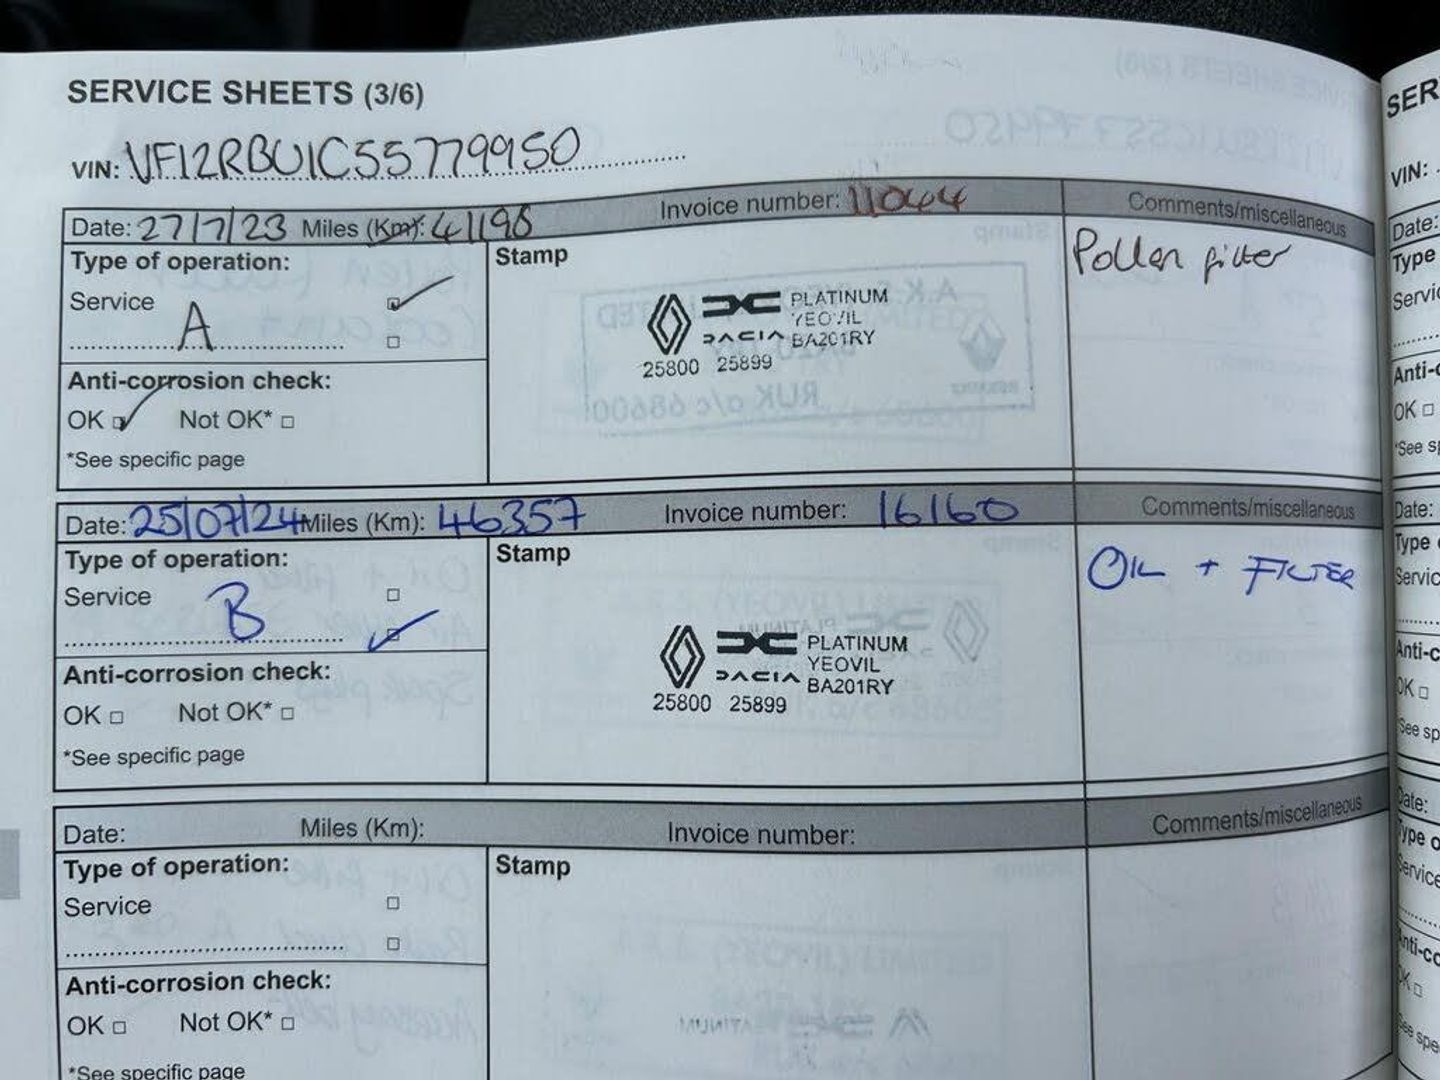 SERVICE SHEETS (3/6)
VIN: VF12RBU1C55779950
Date: 27/7/23 Miles (Km): 41198 Invoice number: 11044 Comments/miscellaneous
Type of operation:
Service
A
Stamp
PLATINUM
YEOVIL
DACIA BA201RY
25800 25899
Pollen filter
Anti-corrosion check:
OK Not OK*
*See specific page
Date: 25/07/24 Miles (Km): 46357 Invoice number: 16160 Comments/miscellaneous
Type of operation:
Service
B
Stamp
PLATINUM
YEOVIL
DACIA BA201RY
25800 25899
OIL + FILTER
Anti-corrosion check:
OK Not OK*
*See specific page
Date: Miles (Km): Invoice number: Comments/miscellaneous
Type of operation:
Service
Stamp
Anti-corrosion check:
OK Not OK*
*See specific page
SER
VIN:
Date:
Type
OK
Date:
Type
OK